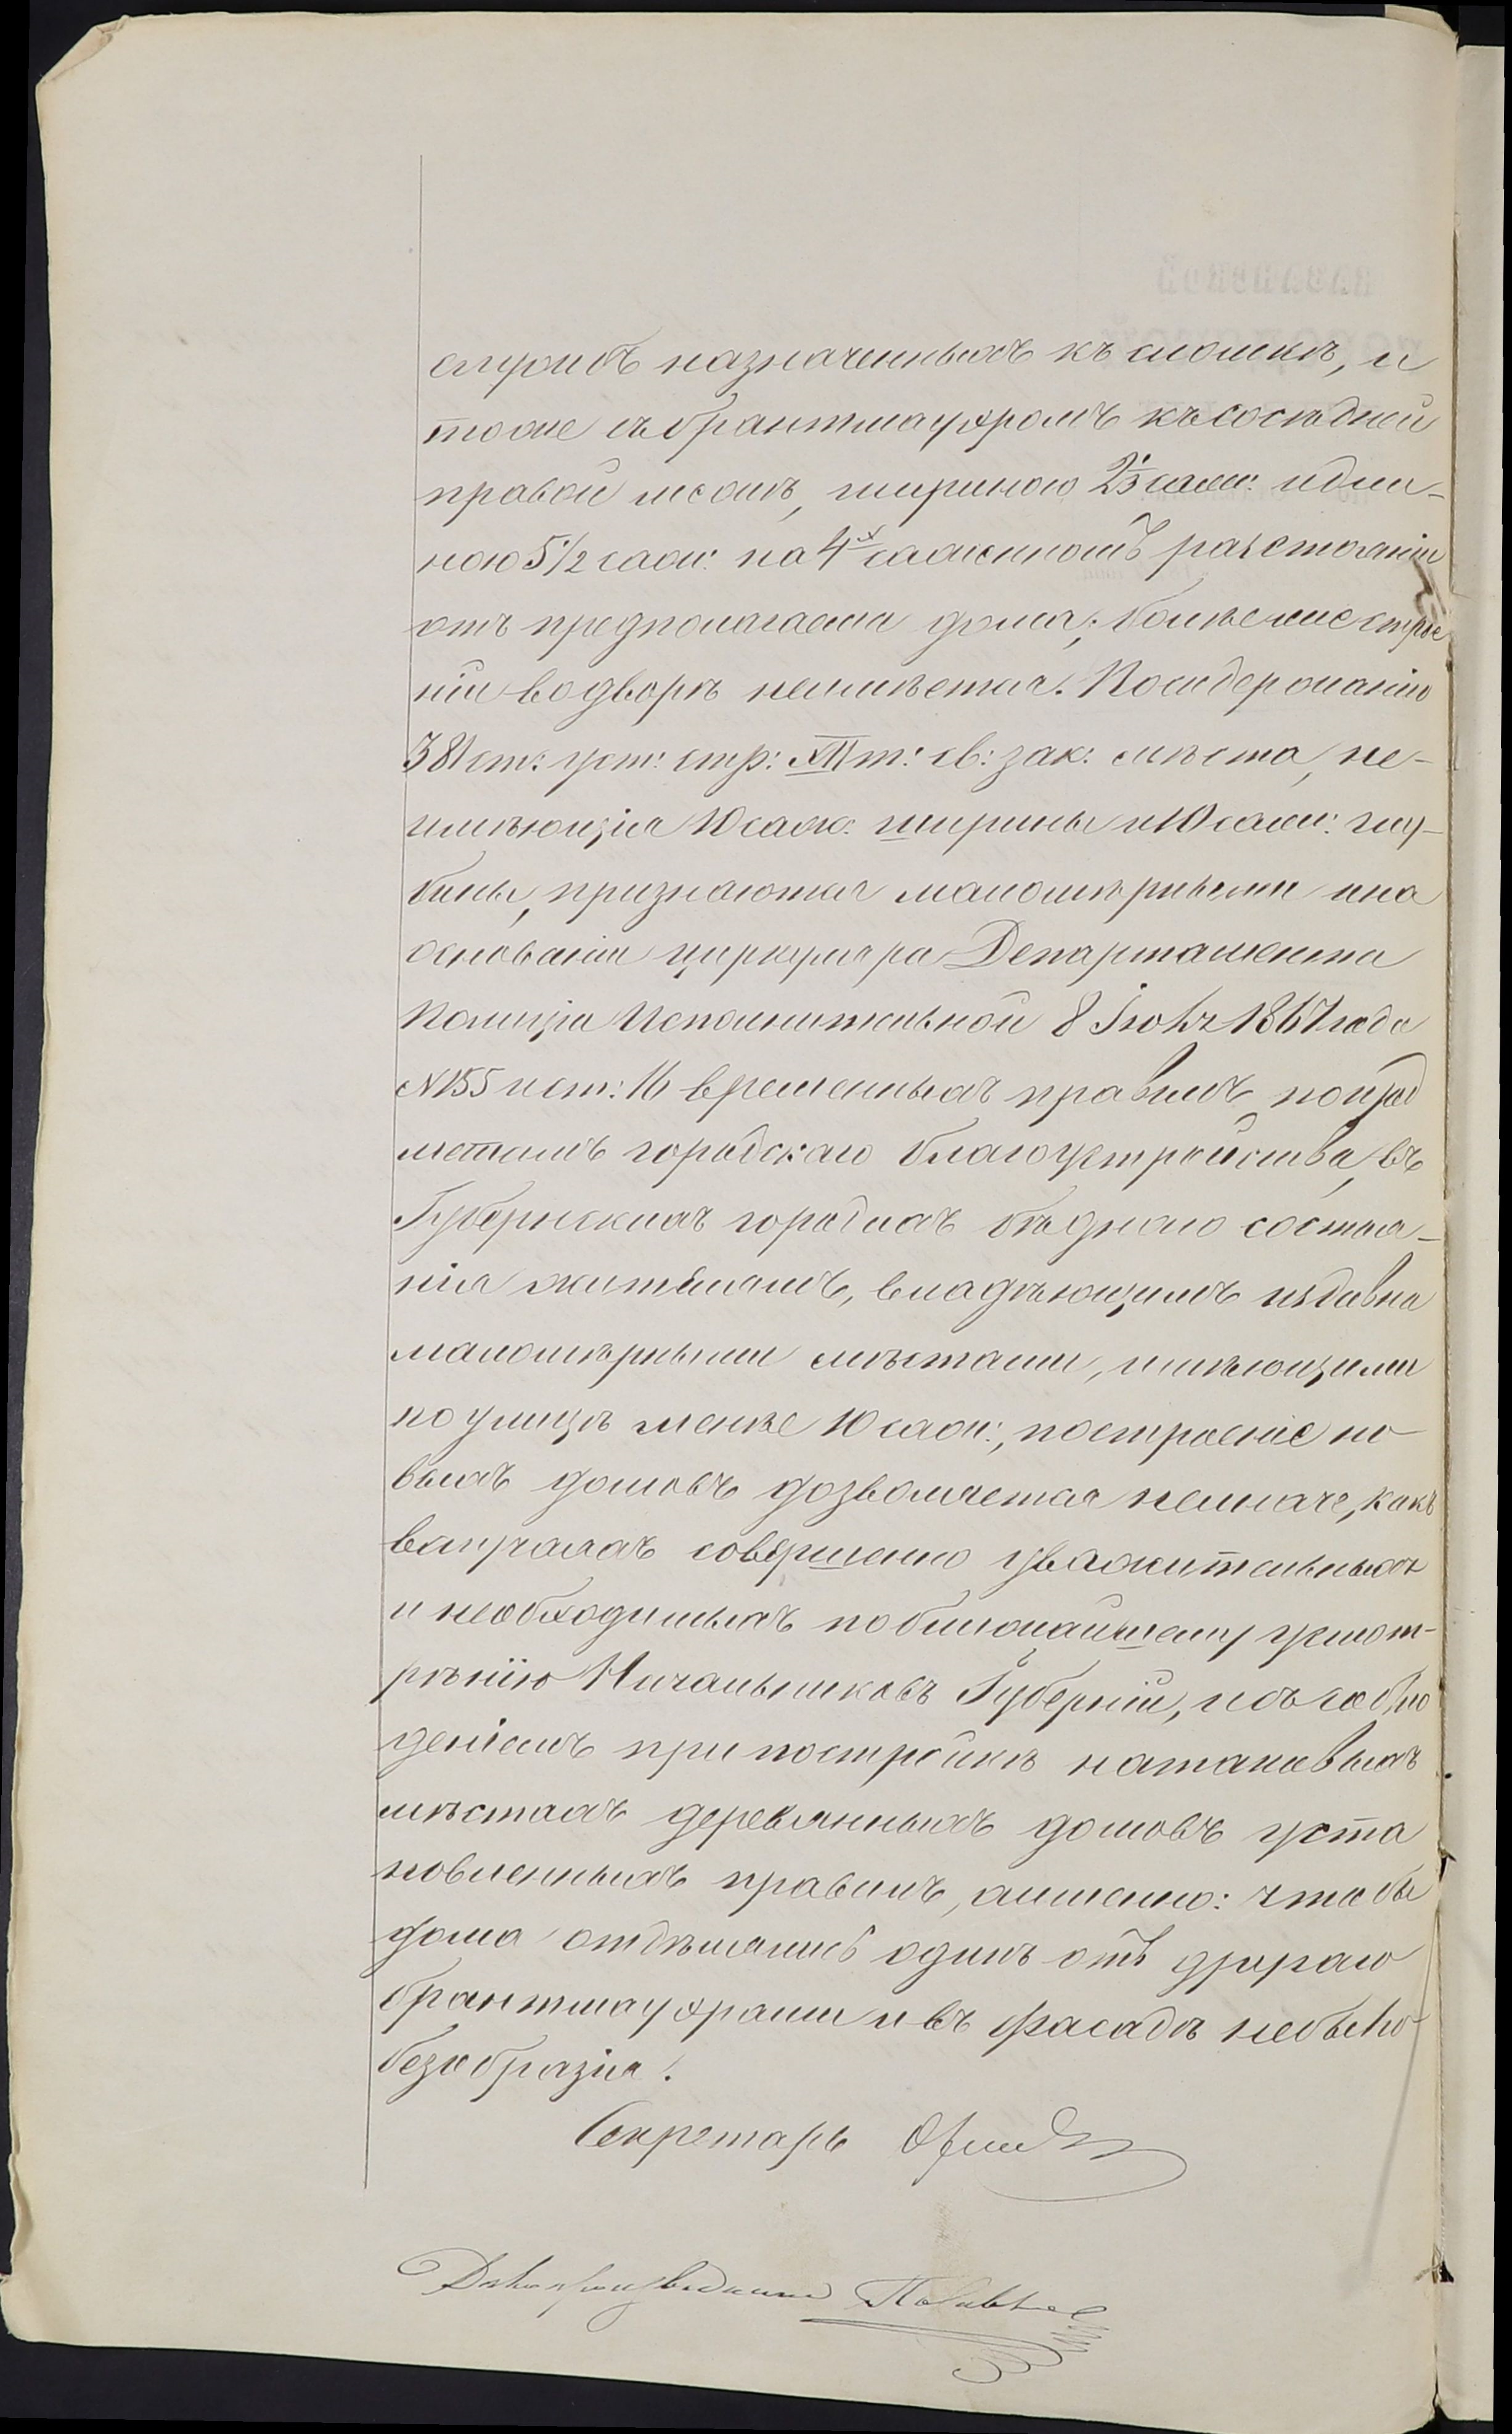 службъ назначенныхъ къ сломкѣ, и
тоже съ брантмауэромъ къ сосѣдней
правой межѣ, шириною 2⅓ саж: и дли-
ною 5½ саж: на 4х саженномъ разстояніи
отъ предполагаема дома; болѣе же строе
нія во дворѣ неимѣется. По содержанію
381 ст: уст: стр: XII т: св: зак: мѣста, не-
имѣющія 10 саж: ширины и 10 саж: глу-
бины, признаются маломѣрными и на
основаніи циркуляра Департамента
Полиціи Исполнительной 8 Іюля 1867 года
№ 155 и ст: 16 временныхъ правилъ по пред
метамъ городскаго благоустройства, въ
Губернскихъ городахъ бѣднаго состоя-
нія жителямъ, владѣющимъ издавна
маломѣрными мѣстами, имѣющими
по улицѣ менѣе 10 саж:, построеніе но-
выхъ домовъ дозволяется неиначе, какъ
вслучаяхъ совершенно уважительныхъ
и необходимыхъ по ближайшему усмот-
рѣнію Начальниковъ Губерній, и съ соблю
деніемъ при постройкѣ на таковыхъ
мѣстахъ деревянныхъ домовъ уста
новленныхъ правилъ, а именно: чтобы
дома отдѣлялись одинъ отъ другаго
брантмауэрами и въ фасадѣ небыло
безобразія.
Секретарь
Дѣлопроизводитель